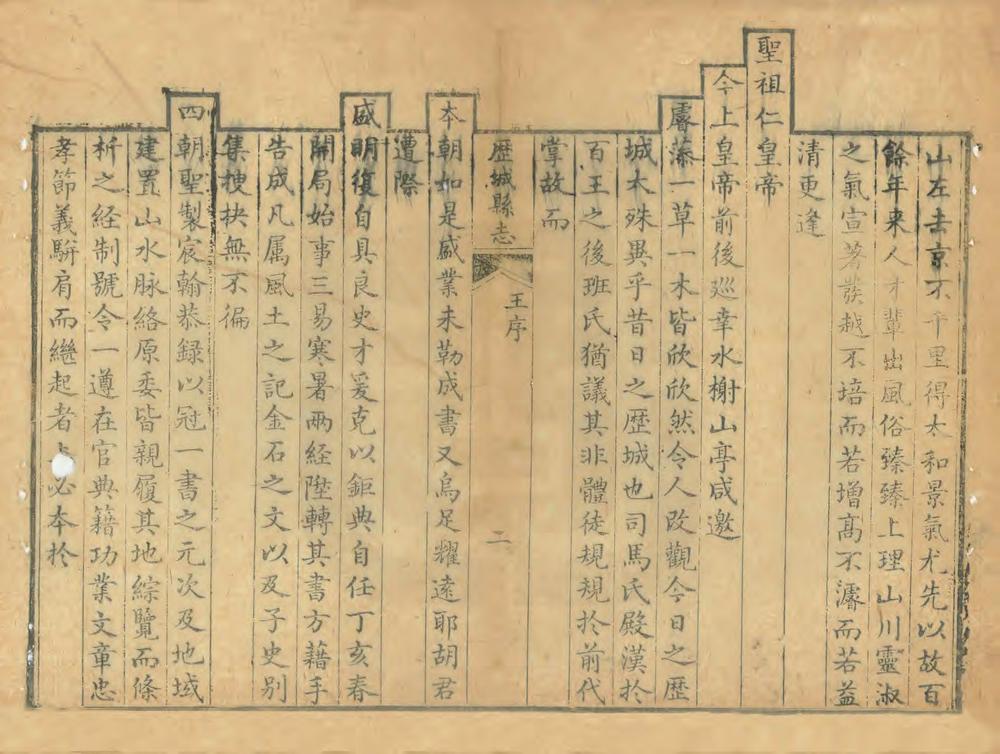 山左去京不千里得太和景氣尤先以故百
餘年来人才輩出風俗臻臻上理山川靈淑
之氣宣著發越不培而若增高不濬而若益
清更逢
聖祖仁皇帝
今上皇帝前後巡幸水榭山亭咸邀
睿藻一草一木皆欣欣然令人改觀今日之歷
城大殊異乎昔日之歷城也司馬氏殿漢於
百王之後班氏猶議其非體徒規規於前代
掌故而
歷城縣志
王序
二
本朝如是盛業未勒成書又烏足耀遠耶胡君
遭際
盛明復自具良史才爰克以鉅典自任丁亥春
開局始事三易寒暑兩経陞轉其書方藉手
告成凡属風土之記金石之文以及子史別
集搜抉無不徧
四朝聖製宸翰恭録以冠一書之元次及地域
建置山水脉絡原委皆親履其地綜覽而條
析之経制號令一遵在官典籍功業文章忠
孝節義駢肩而繼起者必本於